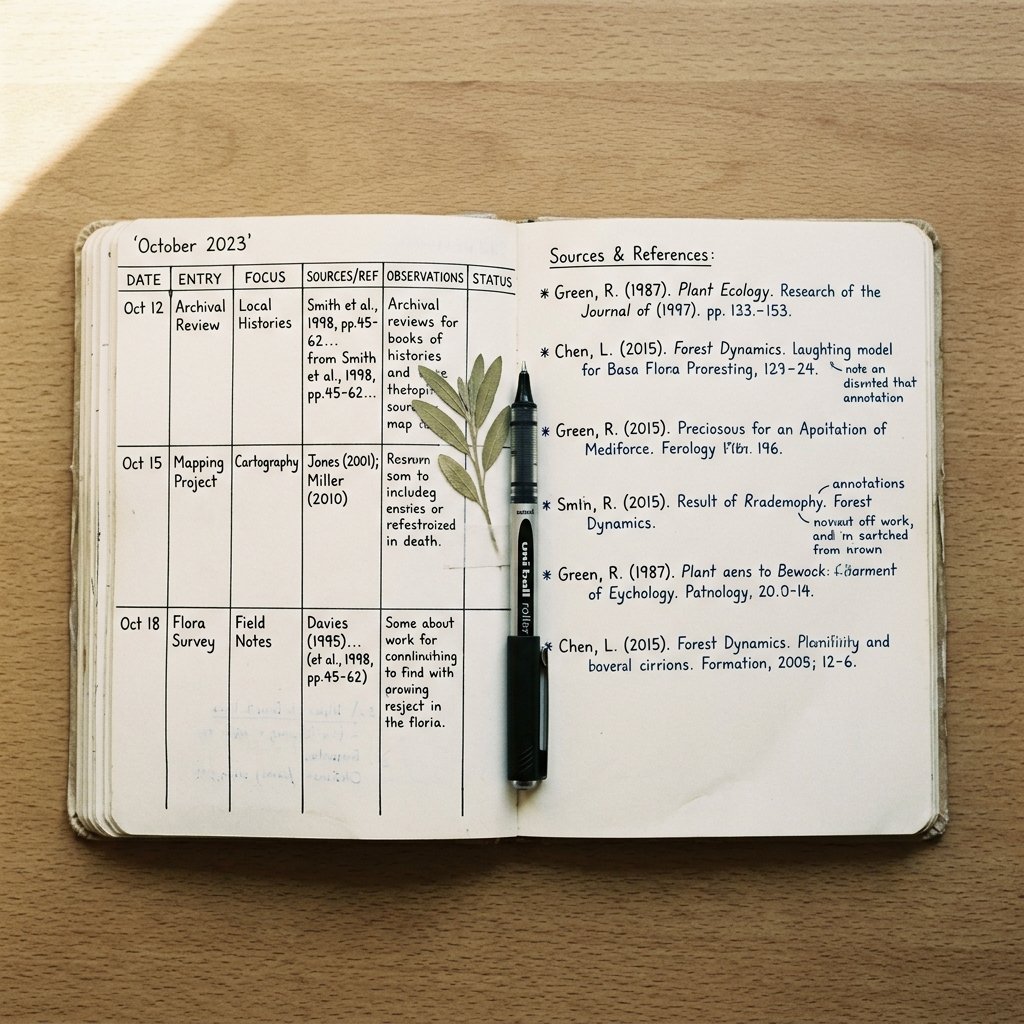 'October 2023'
DATE ENTRY FOCUS SOURCES/REF OBSERVATIONS STATUS
Oct 12
Archival
Review
Local
Histories
Smith et al.,
1998, pp.45-
62...
from Smith
et al., 1998,
pp.45-62...
Archival
reviews for
books of
histories
and
map
Oct 15
Mapping
Project
Cartography
Jones (2001);
Miller
(2010)
som to
includeg
ensries or
refestroized
in death.
Oct 18
Flora
Survey
Field
Notes
Davies
(1995)...
(et al., 1998,
pp.45-62)
Some about
work for
to find with
resject in
the floria.
Sources & References:
* Green, R. (1987). Plant Ecology. Research of the
Journal of (1997). pp. 133.-153.
* Chen, L. (2015). Forest Dynamics. Laughting model
for Basa Flora Proresting, 129-24.
note an
disnted that
annotation
* Green, R. (2015). Preciosous for an Apoitation of
Mediforce. Ferology 196.
* R. (2015). Result of Rrademophy. Forest
Dynamics.
annotations
off work,
and sartched
from
* Green, R. (1987). Plant aens to Bewock:
of Eychology. Patnology, 20.0-14.
* Chen, L. (2015). Forest Dynamics. and
boveral cirrions. Formation, 2005; 12-6.
uni ball
roller